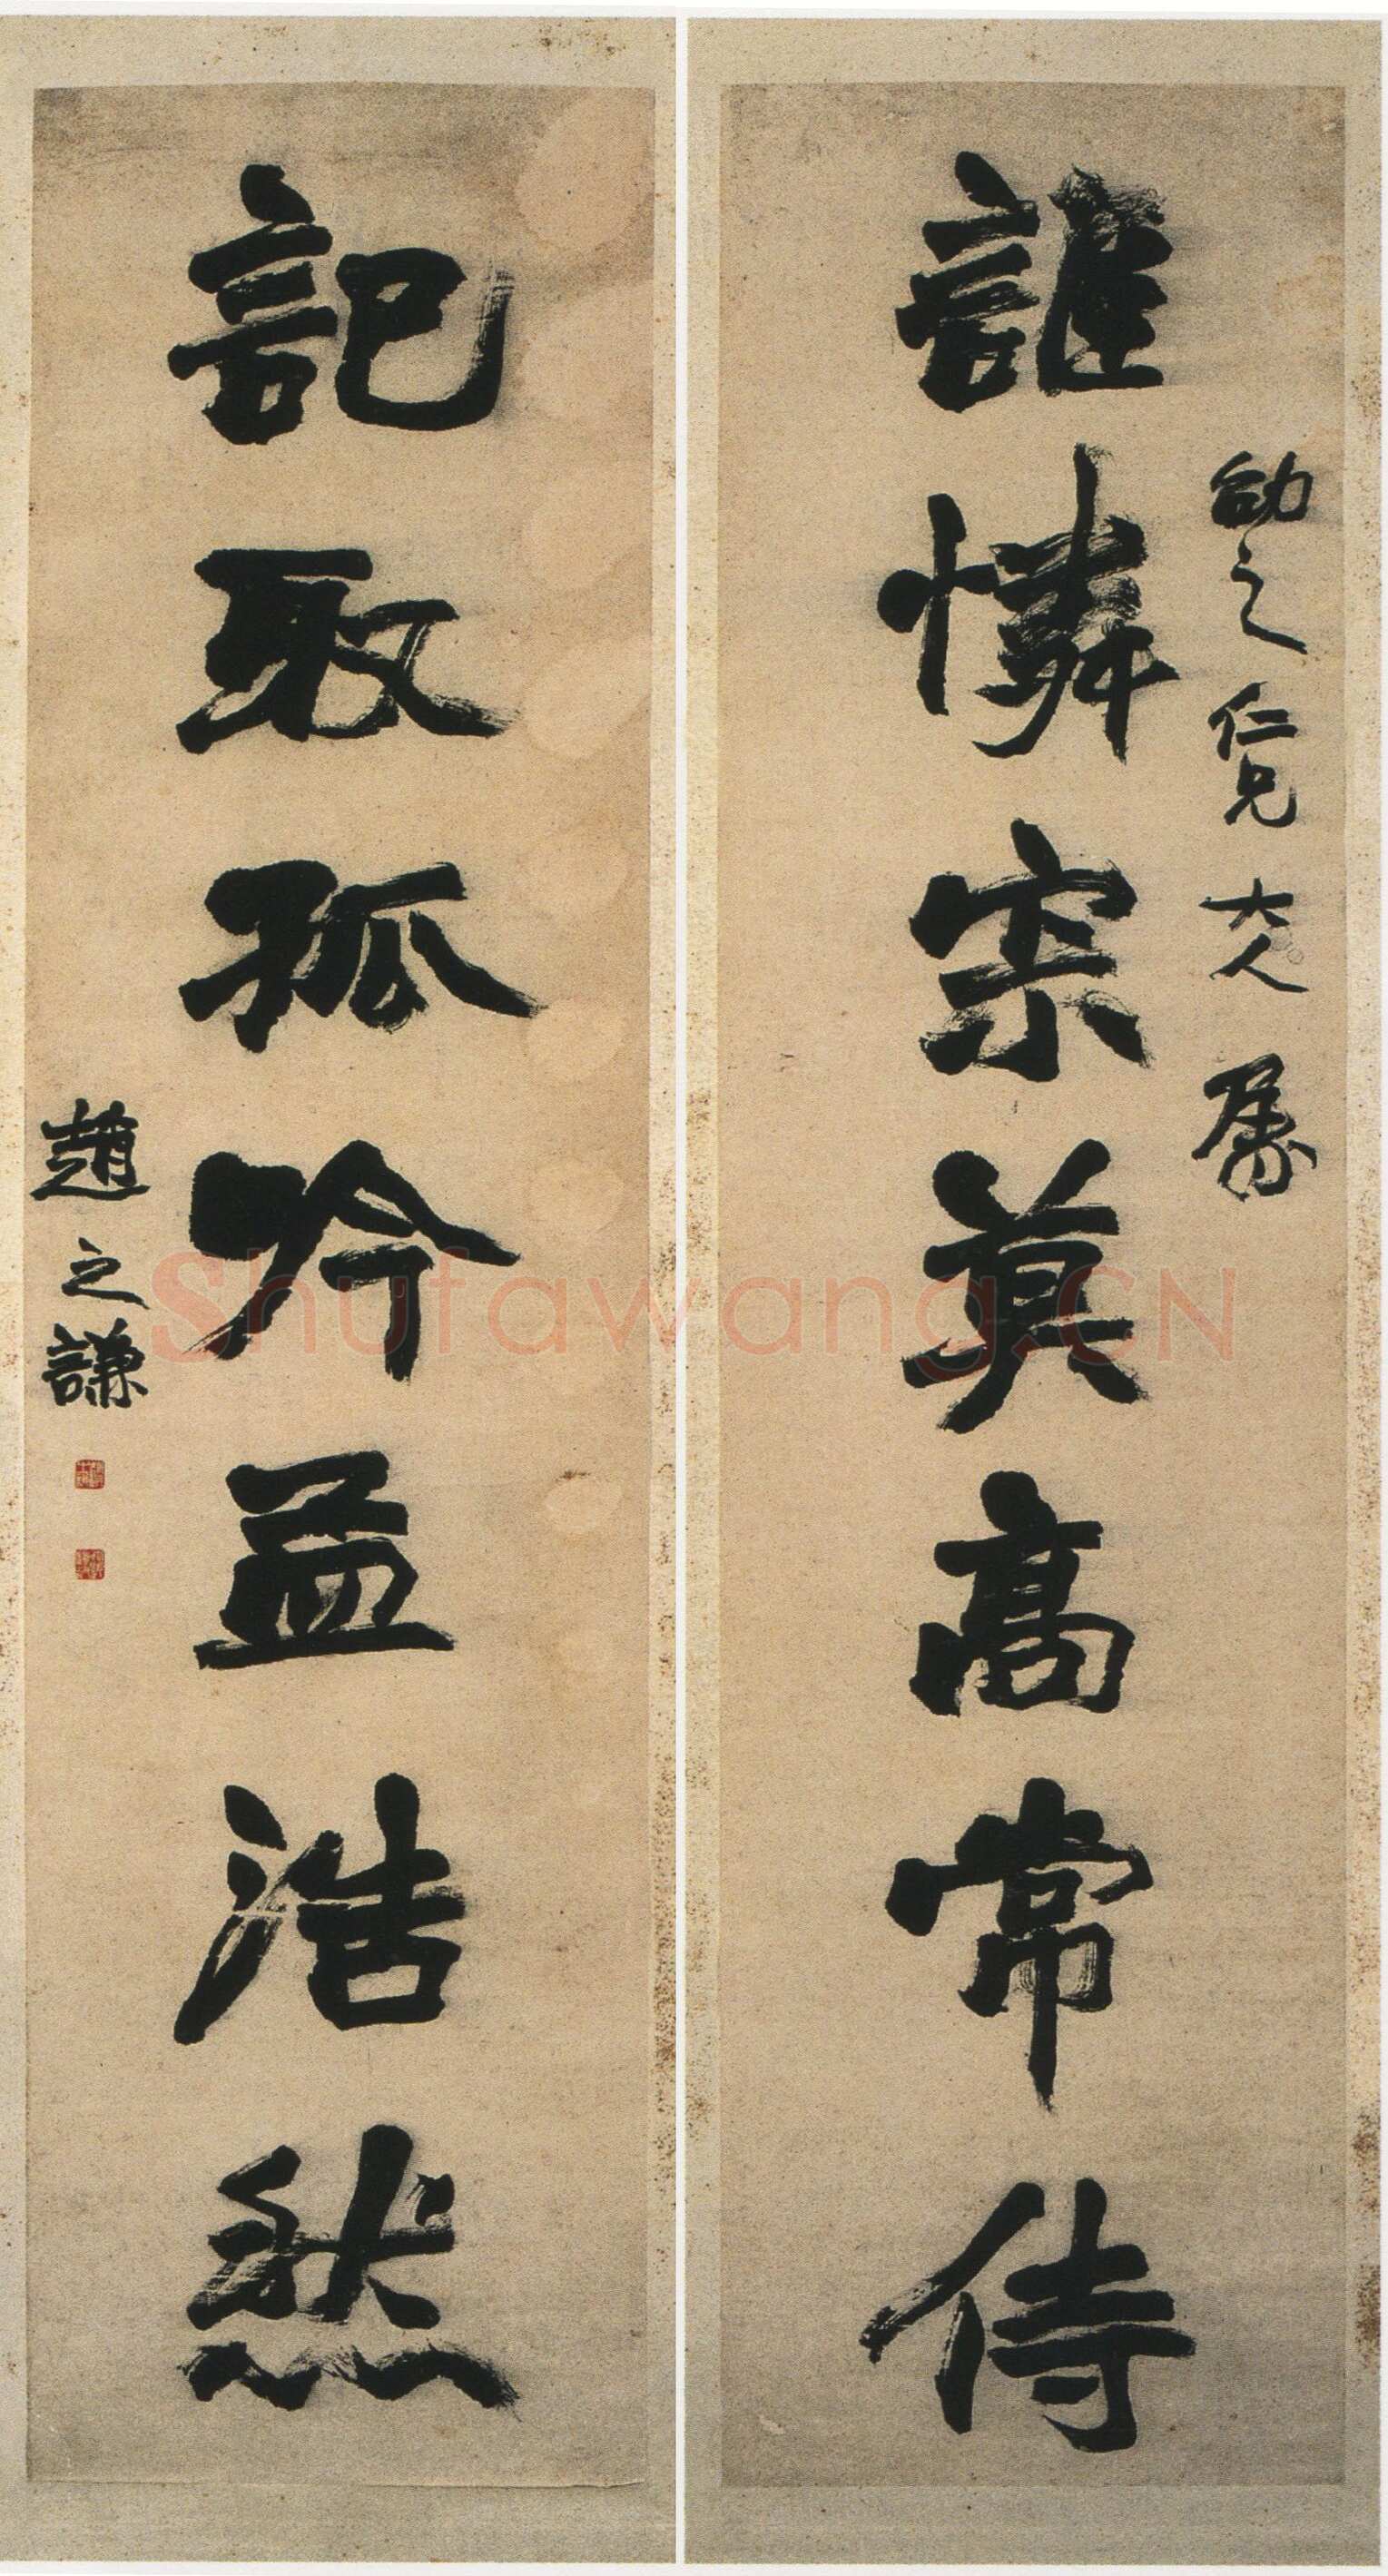 幼之仁兄大人属
誰憐宗莫高常侍
記取孤吟孟浩然
趙之謙
Shufawang.CN